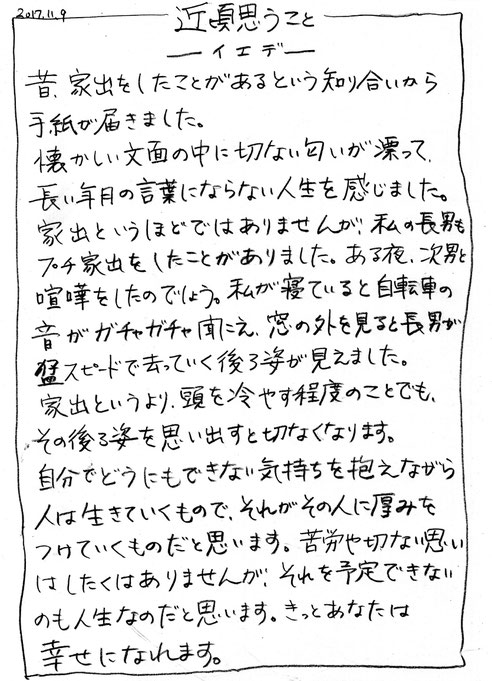 2017.11.9
近頃思うこと
―イエデ―
昔、家出をしたことがあるという知り合いから
手紙が届きました。
懐かしい文面の中に切ない匂いが漂って、
長い年月の言葉にならない人生を感じました。
家出というほどではありませんが、私の長男も
プチ家出をしたことがありました。ある夜、次男と
喧嘩をしたのでしょう。私が寝ていると自転車の
音がガチャガチャ聞こえ、窓の外を見ると長男が
猛スピードで去っていく後ろ姿が見えました。
家出というより、頭を冷やす程度のことでも、
その後ろ姿を思い出すと切なくなります。
自分でどうにもできない気持ちを抱えながら
人は生きていくもので、それがその人に厚みを
つけていくものだと思います。苦労や切ない思い
はしたくはありませんが、それを予定できない
のも人生なのだと思います。きっとあなたは
幸せになれます。